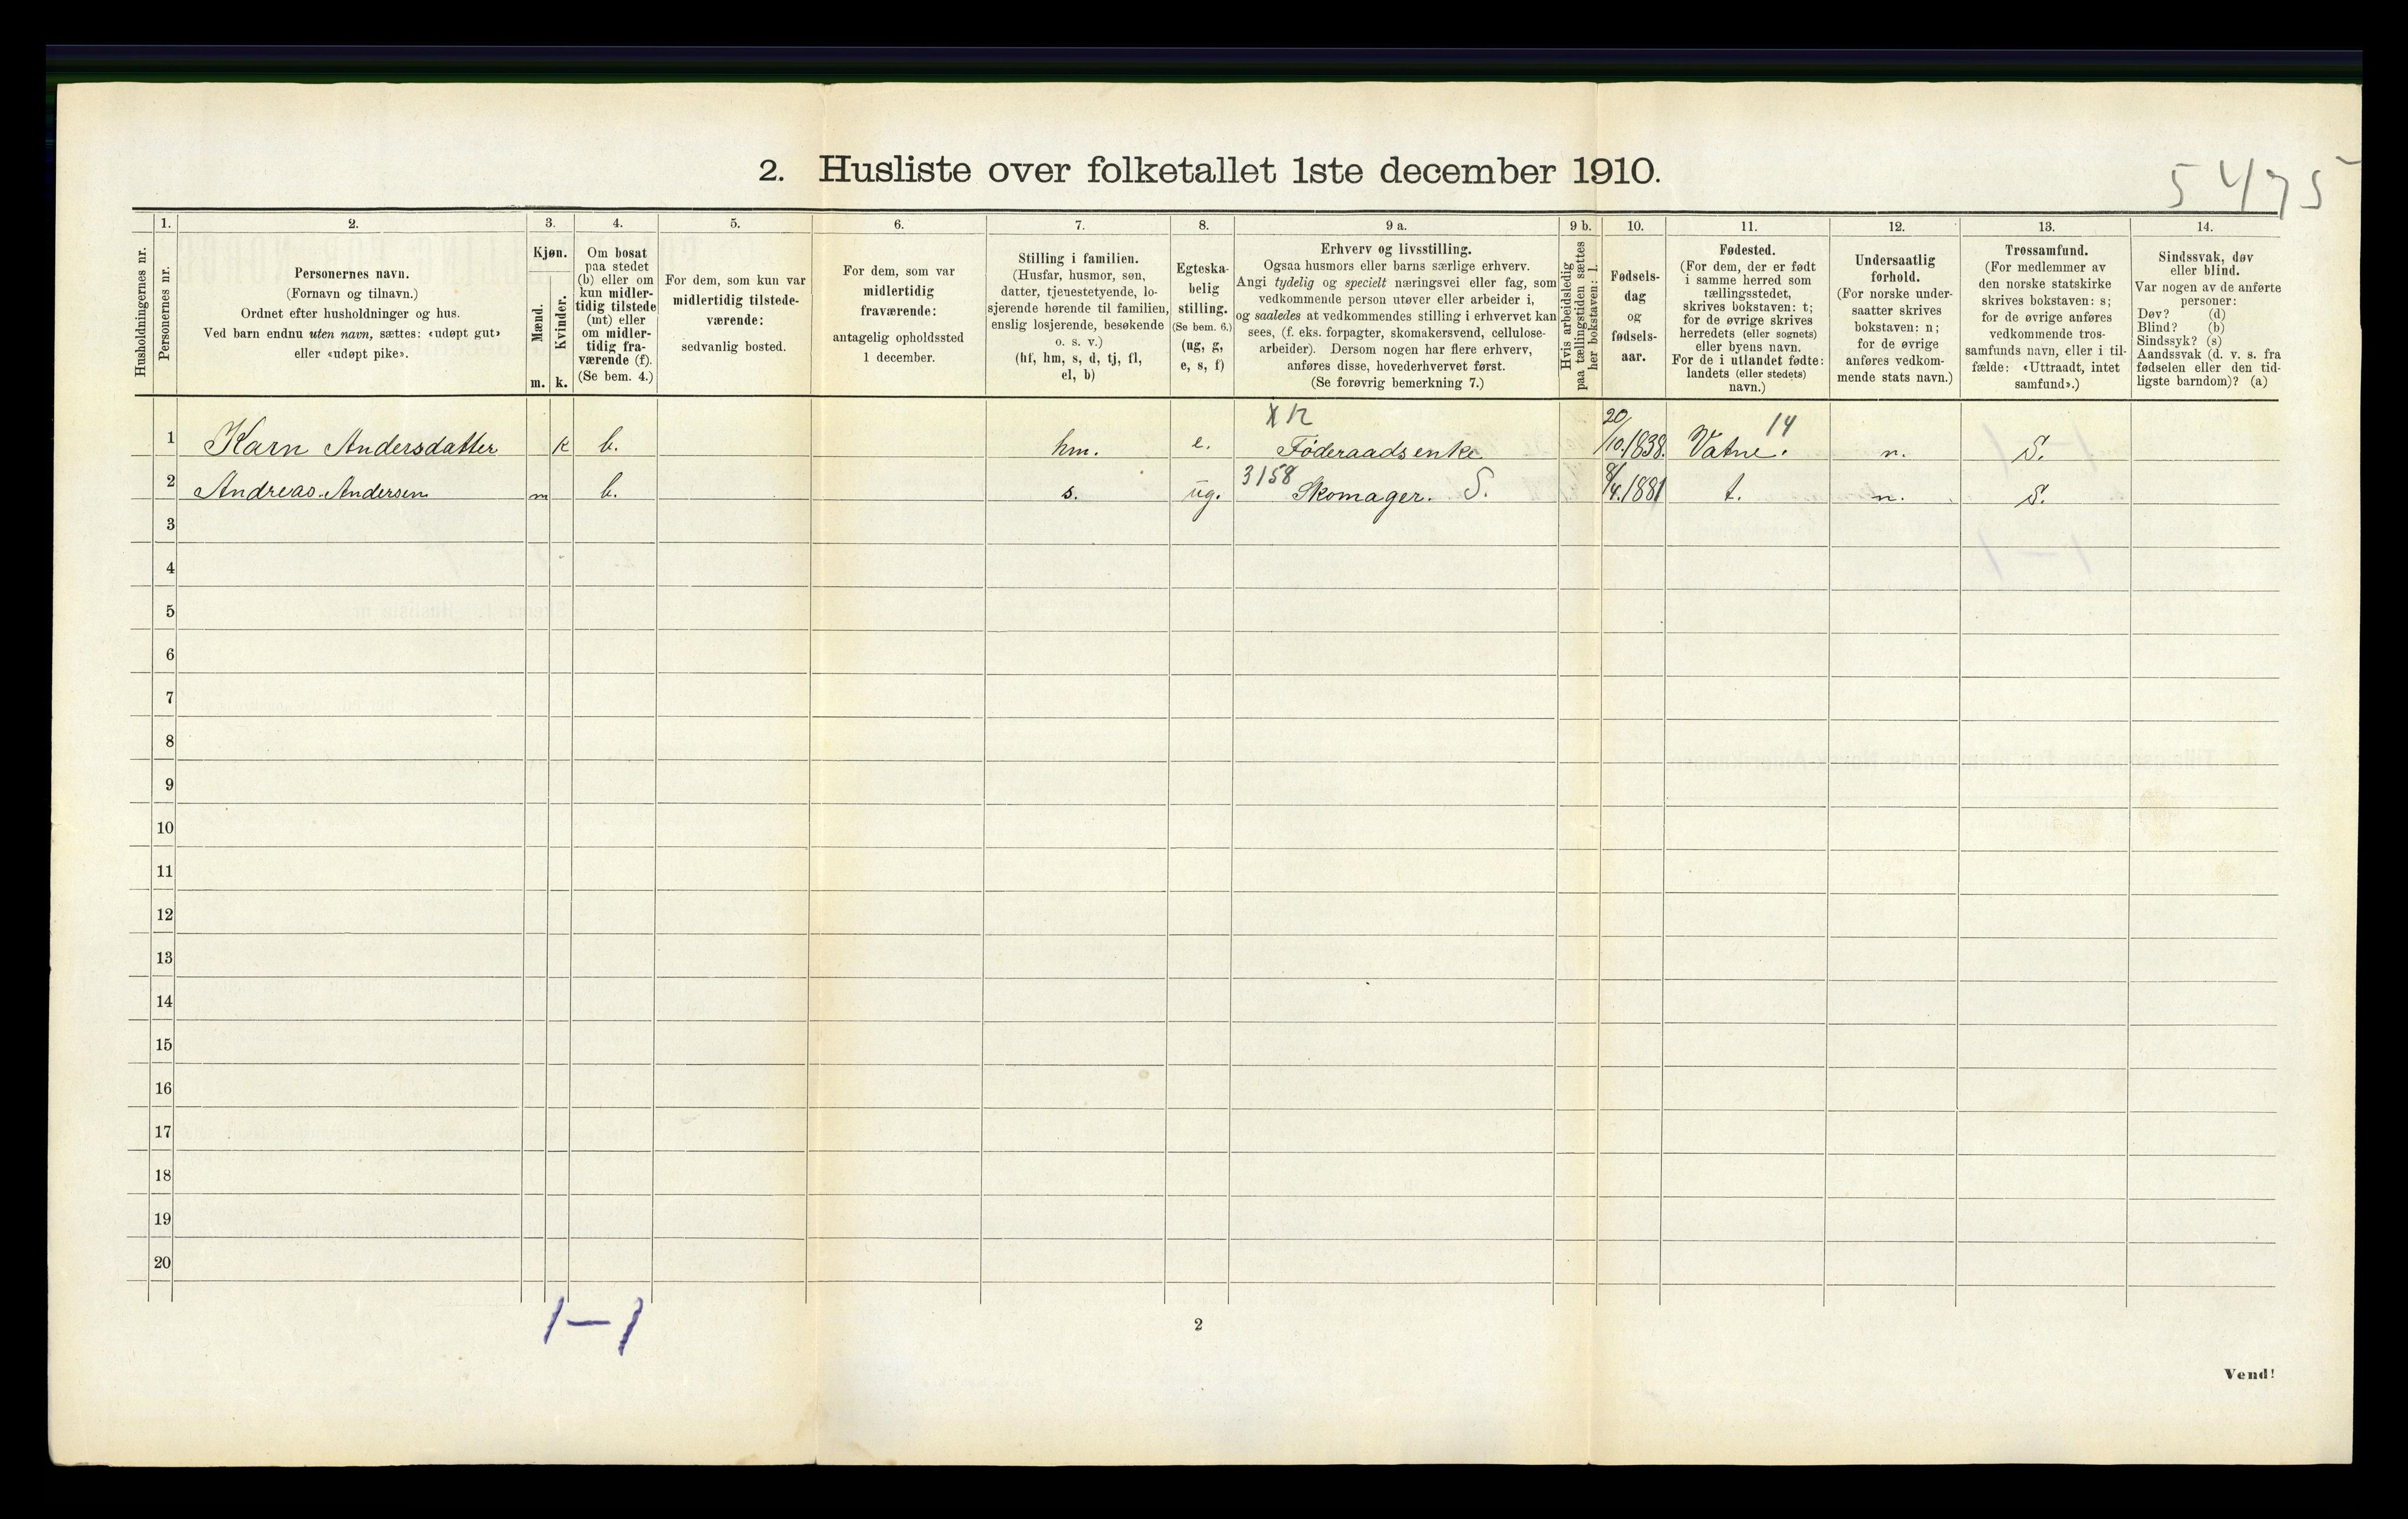 2. Husliste over folketallet 1ste december 1910.
5475
1. 2. 3. 4. 5. 6. 7. 8. 9 a. 9 b. 10. 11. 12. 13. 14.
Husholdningernes nr.
Personernes nr.
Personernes navn.
(Fornavn og tilnavn.)
Ordnet efter husholdninger og hus.
Ved barn endnu uten navn, sættes: «udøpt gut»
eller «udøpt pike».
Kjøn.
Mænd.
Kvinder.
m. k.
Om bosat
paa stedet
(b) eller om
kun midler-
tidig tilstede
(mt) eller
om midler-
tidig fra-
værende (f).
(Se bem. 4.)
For dem, som kun var
midlertidig tilstede-
værende:
sedvanlig bosted.
For dem, som var
midlertidig
fraværende:
antagelig opholdssted
1 december.
Stilling i familien.
(Husfar, husmor, søn,
datter, tjenestetyende, lo-
sjerende hørende til familien,
enslig losjerende, besøkende
o. s. v.)
(hf, hm, s, d, tj, fl,
el, b)
Egteska-
belig
stilling.
(Se bem. 6.)
(ug, g,
e, s, f)
Erhverv og livsstilling.
Ogsaa husmors eller barns særlige erhverv.
Angi tydelig og specielt næringsvei eller fag, som
vedkommende person utøver eller arbeider i,
og saaledes at vedkommendes stilling i erhvervet kan
sees, (f. eks. forpagter, skomakersvend, cellulose-
arbeider). Dersom nogen har flere erhverv,
anføres disse, hovederhvervet først.
(Se forøvrig bemerkning 7.)
Hvis arbeidsledig
paa tællingstiden sættes
her bokstaven: l.
Fødsels-
dag
og
fødsels-
aar.
Fødested.
(For dem, der er født
i samme herred som
tællingsstedet,
skrives bokstaven: t;
for de øvrige skrives
herredets (eller sognets)
eller byens navn.
For de i utlandet fødte:
landets (eller stedets)
navn.)
Undersaatlig
forhold.
(For norske under-
saatter skrives
bokstaven: n;
for de øvrige
anføres vedkom-
mende stats navn.)
Trossamfund.
(For medlemmer av
den norske statskirke
skrives bokstaven: s;
for de øvrige anføres
vedkommende tros-
samfunds navn, eller i til-
fælde: «Uttraadt, intet
samfund».)
Sindssvak, døv
eller blind.
Var nogen av de anførte
personer:
Døv? (d)
Blind? (b)
Sindssyk? (s)
Aandssvak (d. v. s. fra
fødselen eller den tid-
ligste barndom)? (a)
1 Karn Andersdatter k b. hm. e. Føderaadsenke 20/10.1838. Vatne. 14 n. S.
2 Andreas Andersen m b. s. ug. 3158 Skomager. S. 8/4.1881 t. n. S.
3
4
5
6
7
8
9
10
11
12
13
14
15
16
17
18
19
20
1–1
2
Vend!